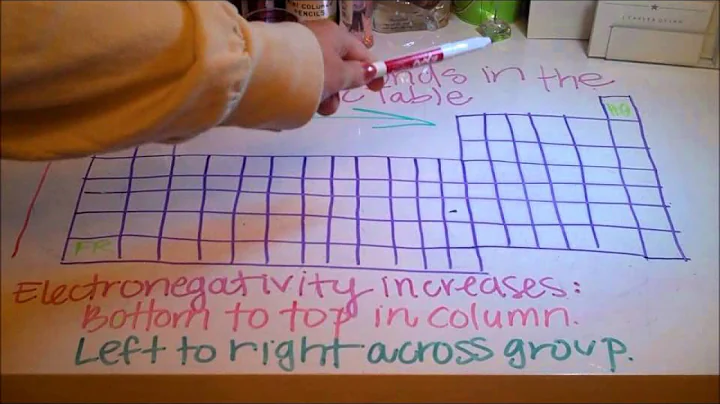 COLORED
PENCILS
nds in the
ic Table
FR
Electronegativity increases:
Bottom to top in column.
Left to right across group.